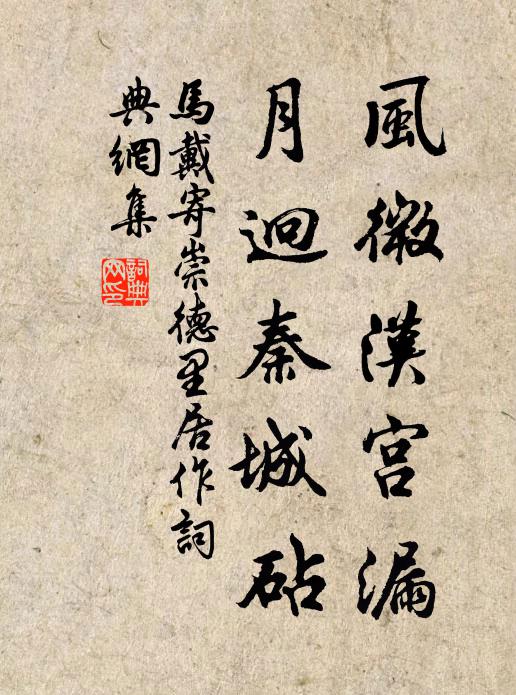 風微漢宮漏
月迥秦城砧
馬戴寄崇德里居作詞
典網集
詞典
网印